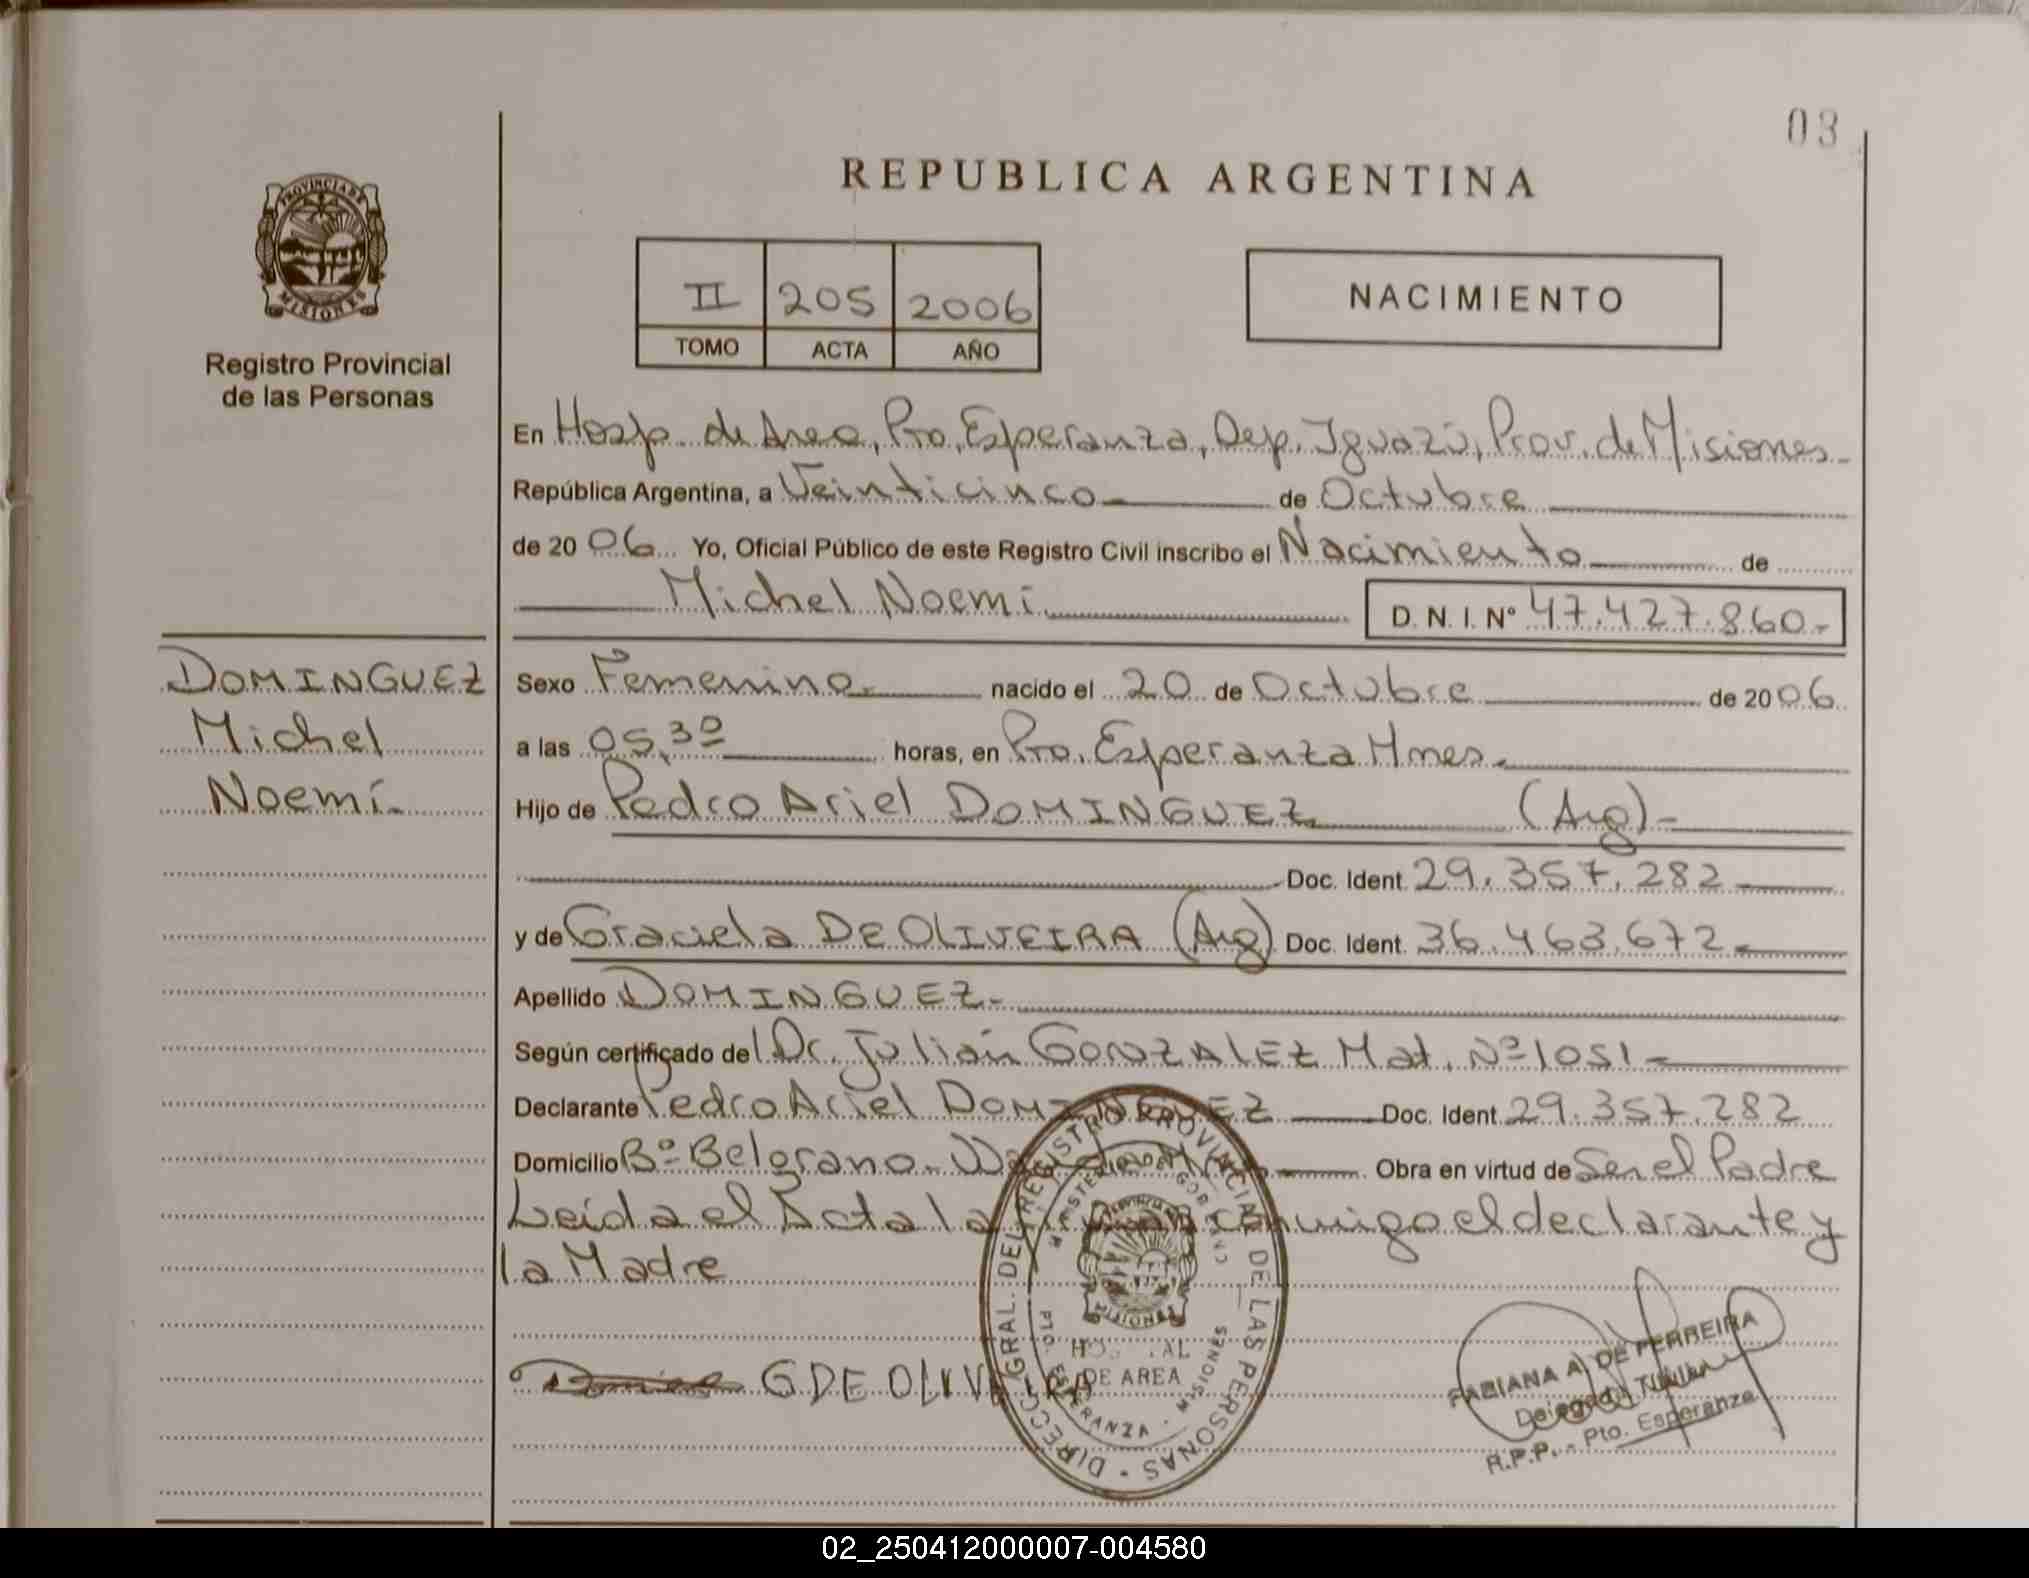 03
REPUBLICA ARGENTINA
PROVINCIA DE
MISIONES
Registro Provincial
de las Personas
II 205 2006
TOMO ACTA AÑO
NACIMIENTO
En Hosp. de Area, Pto. Esperanza, Dep. Iguazú, Prov. de Misiones
República Argentina, a Veinticinco de Octubre
de 2006 Yo, Oficial Público de este Registro Civil inscribo el Nacimiento de
Michel Noemi D. N. I. Nº 47.427.860.-
DOMINGUEZ
Michel
Noemí
Sexo Femenino nacido el 20 de Octubre de 2006
a las 05,30 horas, en Pto. Esperanza Mnes.
Hijo de Pedro Ariel DOMINGUEZ (Arg)
Doc. Ident. 29.357.282
y de Graciela DE OLIVEIRA (Arg) Doc. Ident. 36.463.672
Apellido DOMINGUEZ
Según certificado del Dr. Julián GONZALEZ Mat. Nº 1051
Declarante Pedro Ariel DOMINGUEZ Doc. Ident. 29.357.282
Domicilio Bº Belgrano Obra en virtud de Ser el Padre
Leída el Acta la firman conmigo el declarante y
la Madre
G DE OLIVEIRA
DIRECC. GRAL. DEL REGISTRO PROVINCIAL DE LAS PERSONAS
MINISTERIO DE GOBIERNO
HOSPITAL
DE AREA
PTO. ESPERANZA - MISIONES
FABIANA A. DE FERREIRA
Delegada Titular
R.P.P. - Pto. Esperanza
02_250412000007-004580